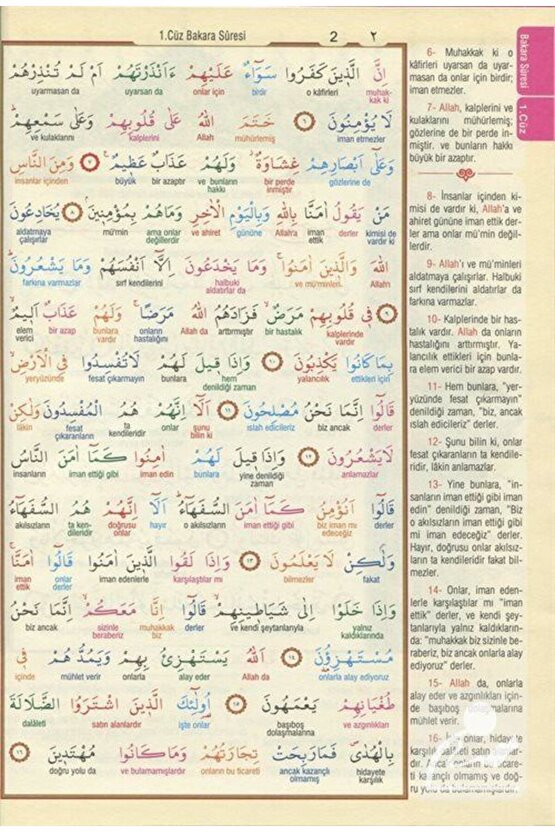 1.Cüz Bakara Sûresi 2 ٢
اِنَّ الَّذٖينَ كَفَرُوا سَوَٓاءٌ عَلَيْهِمْ ءَاَنْذَرْتَهُمْ اَمْ لَمْ تُنْذِرْهُمْ
muhak-kak ki o kâfirleri birdir onlar için uyarsan da uyarmasan da
لَا يُؤْمِنُونَ ٦ خَتَمَ اللّٰهُ عَلٰى قُلُوبِهِمْ وَعَلٰى سَمْعِهِمْ
iman etmezler mühürlemiş Allah kalplerini ve kulaklarını
وَعَلٰٓى اَبْصَارِهِمْ غِشَاوَةٌ وَلَهُمْ عَذَابٌ عَظٖيمٌ ٧ وَمِنَ النَّاسِ
gözlerine de bir perde inmiştir ve bunların hakkı bir azaptır büyük insanlar içinden
مَنْ يَقُولُ اٰمَنَّا بِاللّٰهِ وَبِالْيَوْمِ الْاٰخِرِ وَمَاهُمْ بِمُؤْمِنٖينَ ٨ يُخَادِعُونَ
kimisi de vardır ki derler iman ettik Allah'a gününe ve ahiret ama onlar değillerdir mü'min aldatmaya çalışırlar
اللّٰهَ وَالَّذٖينَ اٰمَنُوا وَمَا يَخْدَعُونَ اِلَّٓا اَنْفُسَهُمْ وَمَا يَشْعُرُونَ
Allah ve mü'minleri halbuki aldatırlar da sırf kendilerini farkına varmazlar
٩ فٖي قُلُوبِهِمْ مَرَضٌ فَزَادَهُمُ اللّٰهُ مَرَضًا وَلَهُمْ عَذَابٌ اَلٖيمٌ
kalplerinde vardır bir hastalık arttırmıştır Allah da onların hastalığını bunlara vardır bir azap elem verici
بِمَا كَانُوا يَكْذِبُونَ ١٠ وَاِذَا قٖيلَ لَهُمْ لَاتُفْسِدُوا فِي الْاَرْضِ
ettikleri için yalancılık hem denildiği zaman bunlara fesat çıkarmayın yeryüzünde
قَالُٓوا اِنَّمَا نَحْنُ مُصْلِحُونَ ١١ اَلَٓا اِنَّهُمْ هُمُ الْمُفْسِدُونَ وَلٰكِنْ
derler biz ancak ıslah edicileriz şunu bilin ki onlar ta kendileridir fesat çıkaranların lâkin
لَايَشْعُرُونَ ١٢ وَاِذَا قٖيلَ لَهُمْ اٰمِنُوا كَمَٓا اٰمَنَ النَّاسُ
anlamazlar yine denildiği zaman bunlara iman edin iman ettiği gibi insanların
قَالُٓوا اَنُؤْمِنُ كَمَٓا اٰمَنَ السُّفَهَٓاءُ اَلَٓا اِنَّهُمْ هُمُ السُّفَهَٓاءُ
derler biz iman mı edeceğiz iman ettiği gibi o akılsızların hayır doğrusu onlar ta kendileridir akılsızların
وَلٰكِنْ لَا يَعْلَمُونَ ١٣ وَاِذَا لَقُوا الَّذٖينَ اٰمَنُوا قَالُٓوا اٰمَنَّا
fakat bilmezler karşılaştılar mı iman edenlerle onlar derler iman ettik
وَاِذَا خَلَوْا اِلٰى شَيَاطٖينِهِمْ قَالُٓوا اِنَّا مَعَكُمْ اِنَّمَا نَحْنُ
yalnız kaldıklarında ve kendi şeytanlarıyla derler muhakkak biz sizinle beraberiz biz ancak
مُسْتَهْزِؤُنَ ١٤ اَللّٰهُ يَسْتَهْزِئُ بِهِمْ وَيَمُدُّهُمْ فٖي
onlarla alay ediyoruz Allah da alay eder onlarla mühlet verir içinde
طُغْيَانِهِمْ يَعْمَهُونَ ١٥ اُولٰٓئِكَ الَّذٖينَ اشْتَرَوُا الضَّلَالَةَ
ve azgınlıkları başıboş dolaşmalarına işte onlar satın alanlardır dalâleti
بِالْهُدٰى فَمَارَبِحَتْ تِجَارَتُهُمْ وَمَاكَانُوا مُهْتَدٖينَ ١٦
hidayete karşılık ancak kazançlı olmamış onların bu ticareti ve bulamamışlardır doğru yolu da
Bakara Sûresi 1.Cüz
6- Muhakkak ki o
kâfirleri uyarsan da uyar-
masan da onlar için birdir;
iman etmezler.
7- Allah, kalplerini ve
kulaklarını mühürlemiş;
gözlerine de bir perde in-
miştir. ve bunların hakkı
büyük bir azaptır.
8- İnsanlar içinden ki-
misi de vardır ki, Allah'a ve
ahiret gününe iman ettik der-
ler ama onlar mü'min değil-
lerdir.
9- Allah'ı ve mü'minleri
aldatmaya çalışırlar. Halbuki
sırf kendilerini aldatırlar da
farkına varmazlar.
10- Kalplerinde bir has-
talık vardır. Allah da onların
hastalığını arttırmıştır. Ya-
lancılık ettikleri için bunla-
ra elem verici bir azap vardır.
11- Hem bunlara, "yer-
yüzünde fesat çıkarmayın"
denildiği zaman, "biz, ancak
ıslah edicileriz" derler.
12- Şunu bilin ki, onlar
fesat çıkaranların ta kendile-
ridir, lâkin anlamazlar.
13- Yine bunlara, "in-
sanların iman ettiği gibi iman
edin" denildiği zaman, "Biz
o akılsızların iman ettiği gibi
mi iman edeceğiz" derler.
Hayır, doğrusu onlar akılsız-
ların ta kendileridir fakat bil-
mezler.
14- Onlar, iman eden-
lerle karşılaştılar mı "iman
ettik" derler, ve kendi şey-
tanlarıyla yalnız kaldıkların-
da: "muhakkak biz sizinle be-
raberiz, biz ancak onlarla alay
ediyoruz" derler.
15- Allah da, onlarla
alay eder ve azgınlıkları için-
de başıboş dolaşmalarına
mühlet verir.
16- onlar, hidayete
karşılık dalâleti satın alanlar-
dır. Ancak onların bu ticare-
ti kazançlı olmamış ve doğ-
ru yolu da bulamamışlardır.